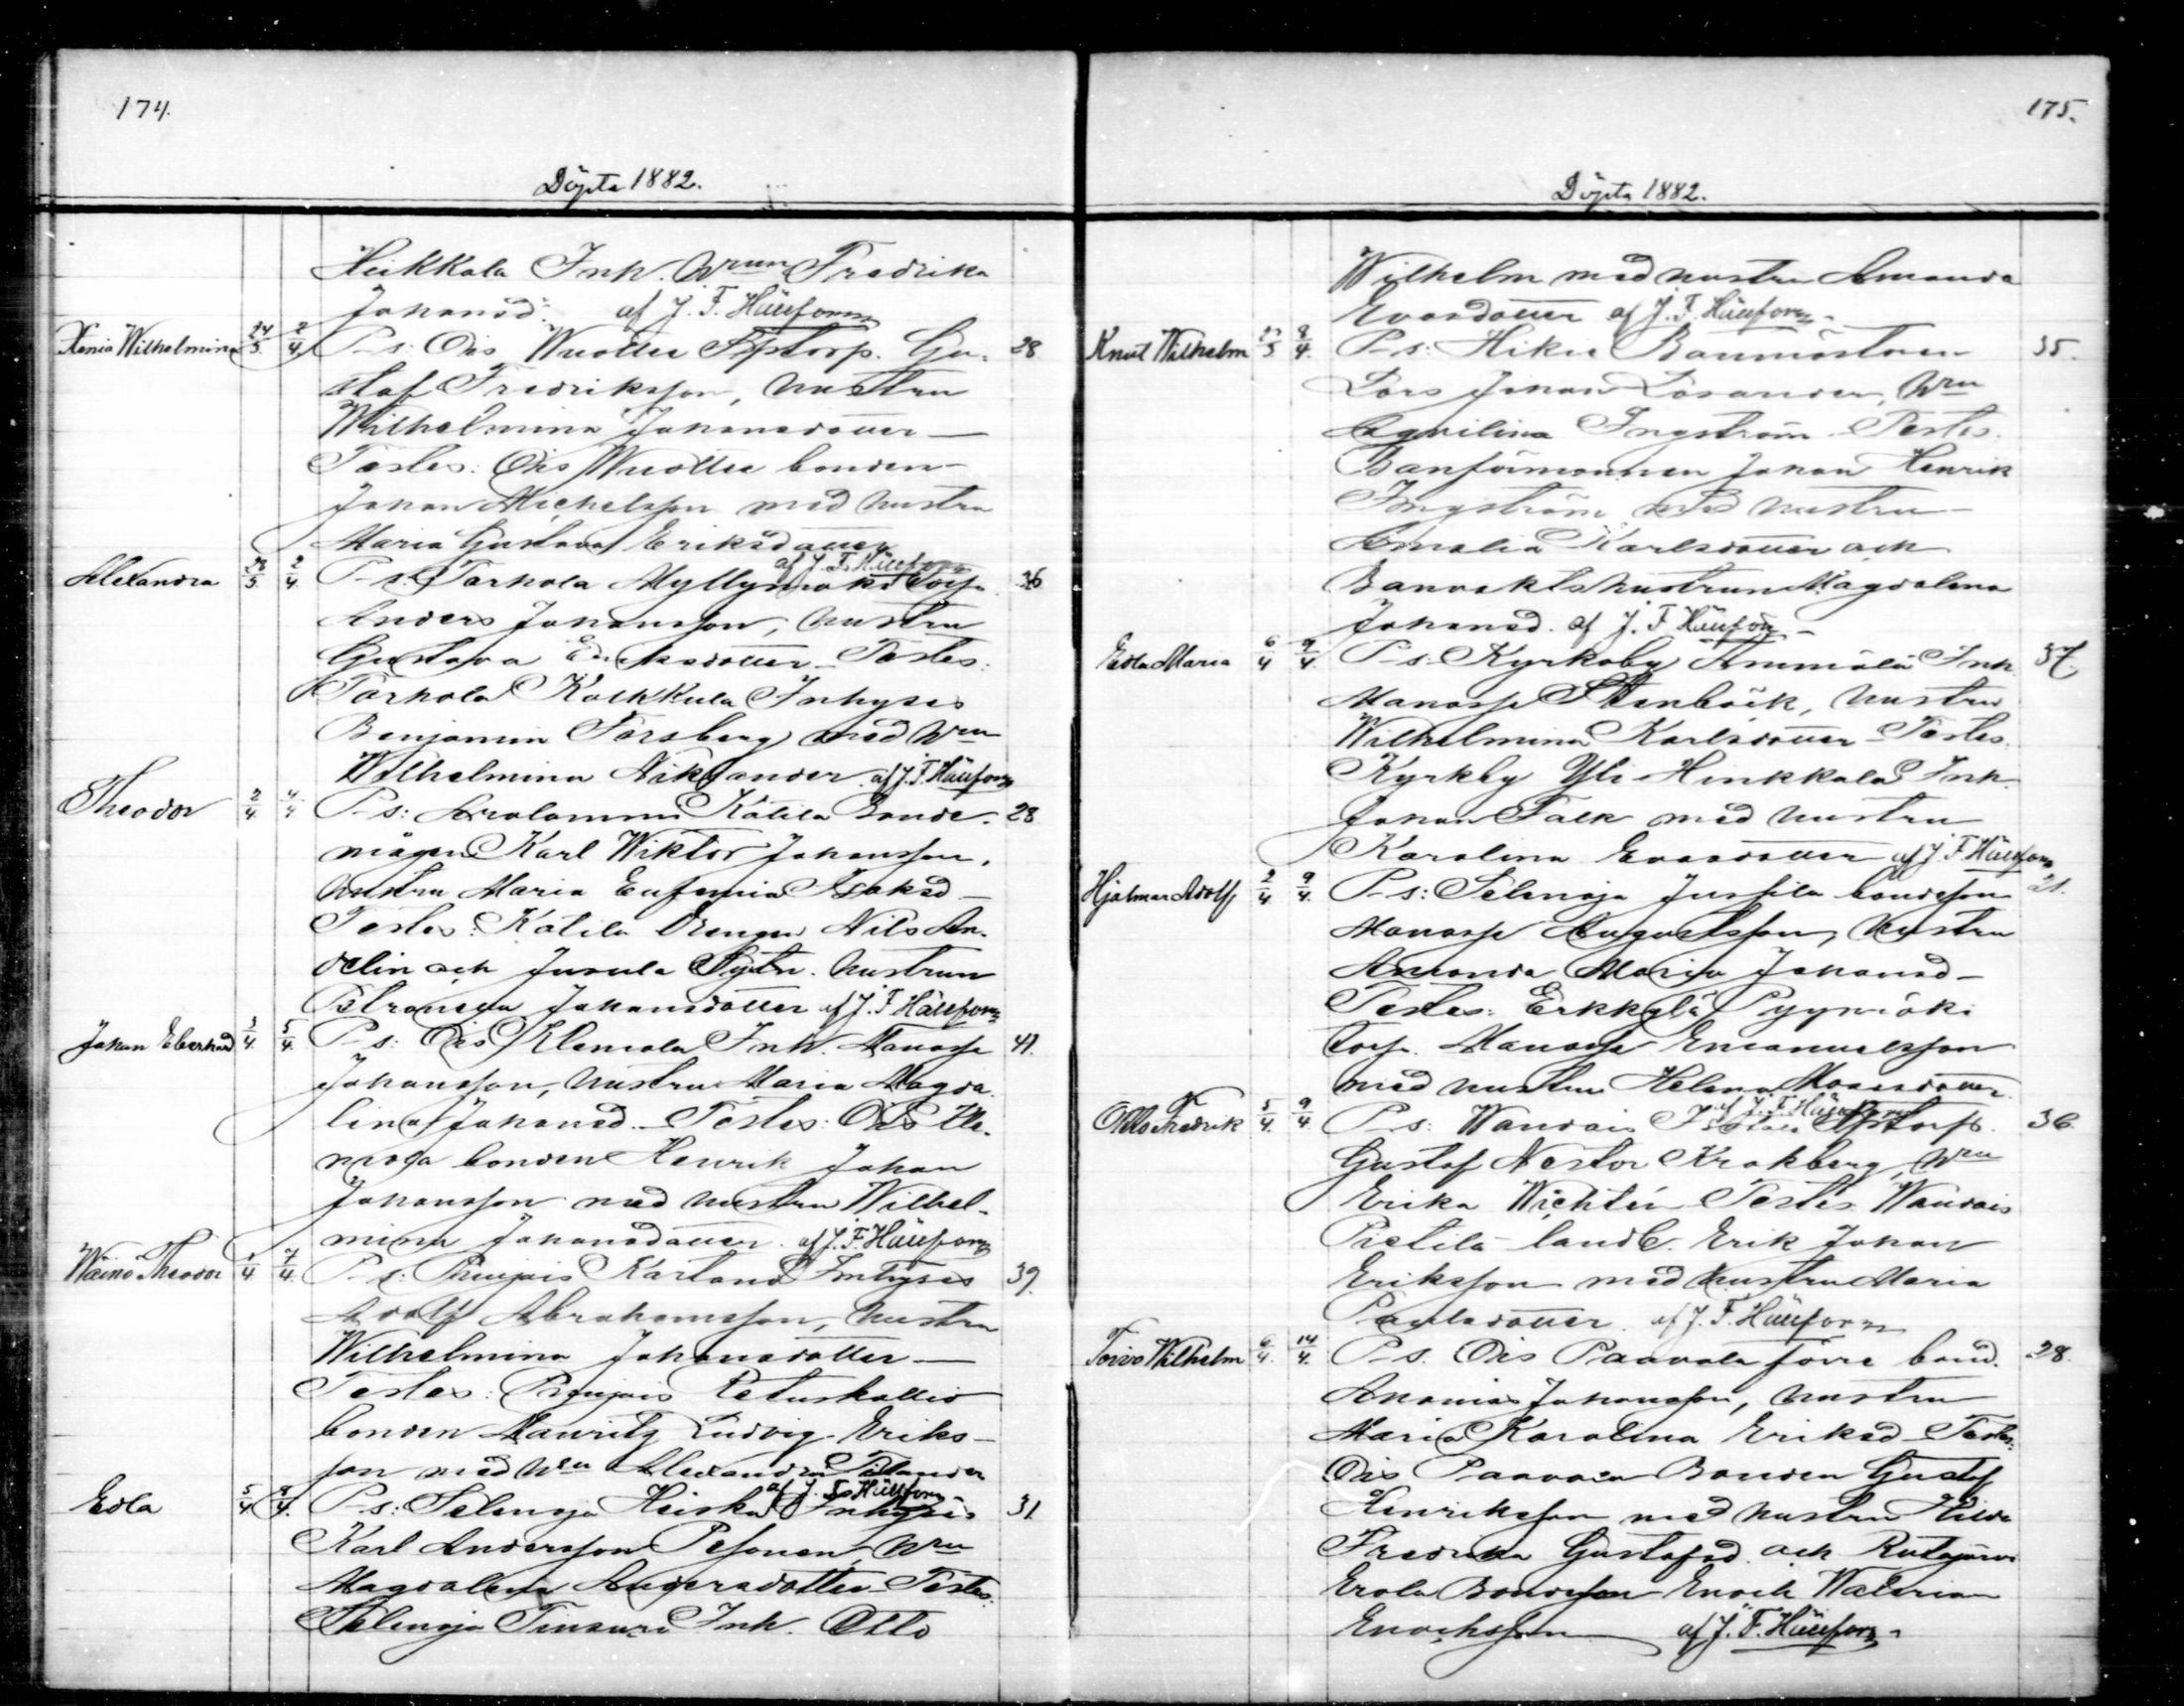 174.
Döpta 1882.
Heikkala Inh. Wrun Fredrika
Johansd: af J. F. Hällfors
Xenia Wilhelmina 24/3 2/4 P-s: Ois Wuoltee Fstorp. Gu- 28
staf Fredriksson, hustru
Wilhelmina Johansdotter —
Testes: Ois Wuoltee bonden
Johan Michelsson med hustru
Maria Gustava Eriksdotter
af J. F. Hällfors
Alexandra 28/3 2/4 P-s: Tarhola Myllymäki torp. 36
Anders Johansson, hustru
Gustava Eriksdotter – Testes:
Torhola Inhyses
Benjamin Forsberg med Wru
Wilhelmina Niklander af J. F. Hällfors
Theodor 2/4 4/4 P-s: Kätilä Bonde- 28
mågen Karl Wiktor Johansson,
hustru Maria Eufemia Isaksd –
Testes: Kätilä Drengen Nils An-
delin och Jusula hustrun
Johansdotter af J. F. Hällfors
Johan Eberhard 3/4 5/4 P-s: Ois Klemola Inh. Manasse 41.
Johansson, hustru Maria Magda-
lina Johansd. – Testes: Ois Kle-
mola bonden Henrik Johan
Johansson med hustru Wilhel-
mina Johansdotter. af J. F. Hällfors
Wäinö Theodor 1/4 7/4 P-s: Penjois Inhyses 39.
Adolf Abrahamsson, hustru
Wilhelmina Johansdotter —
Testes: Penjois
bonden Mauritz Ludvig Eriks-
son med Wru Alexandra
af J. F. Hällfors
Edla 5/4 8/4 P-s: Selensja Heiska Inhyses 31.
Karl Andersson Pesonen, Wru
Magdalena Andersdotter – Testes:
Selensja Inh. Otto
175.
Döpta 1882.
Wilhelm med hustru Amanda
Evasdotter af J. F. Hällfors –
Knut Wilhelm 23/3 8/4 P-s: Hikie Banmästaren 35.
Lars Johan Losander, Wru
Aqvilina Ingström – Testes.
Banförmannen Johan Henrik
Ingström med hustru
Amalia Karlsdotter och
Banvaktshustrun Magdalena
Johansd. af J. F. Hällfors –
Edla Maria 6/4 9/4 P-s: Kyrkoby Ammälä Inh. 37.
Manasse Stenbäck, hustru
Wilhelmina Karlsdotter – Testes.
Kyrkby Yli-Heikkala Inh.
Johan Falk med hustru
Karolina Evasdotter af J. F. Hällfors
Hjalmar Adolf 2/4 9/4 P-s: Selensja Jussila bondeson 21.
Manasse Augustsson, hustru
Amanda Maria Johansd –
Testes: Erkkylä Pyymäki
torp. Manasse Emanuelsson
med hustru Helena
af J. F. Hällfors
Otto Fredrik 5/4 9/4 P-s: Wandais Fstorp. 36
Gustaf Nestor Krakberg, Wru
Erika Wichtén – Testes. Wandais
Pietilä landb. Erik Johan
Eriksson med hustru Maria
Paulsdotter. af J. F. Hällfors
Toivo Wilhelm 6/4 14/4 P-s. Ois Paavola förre bond. 28.
Ananias Johansson, hustru
Maria Karolina Eriksd – Testes:
Ois Paavola Bonden Gustaf
Henriksson med hustru Hilda
Fredrika Gustafsd. och Rutajärvi
Erola Bondeson Enoch Walerian
Enochsson af J. F. Hällfors –